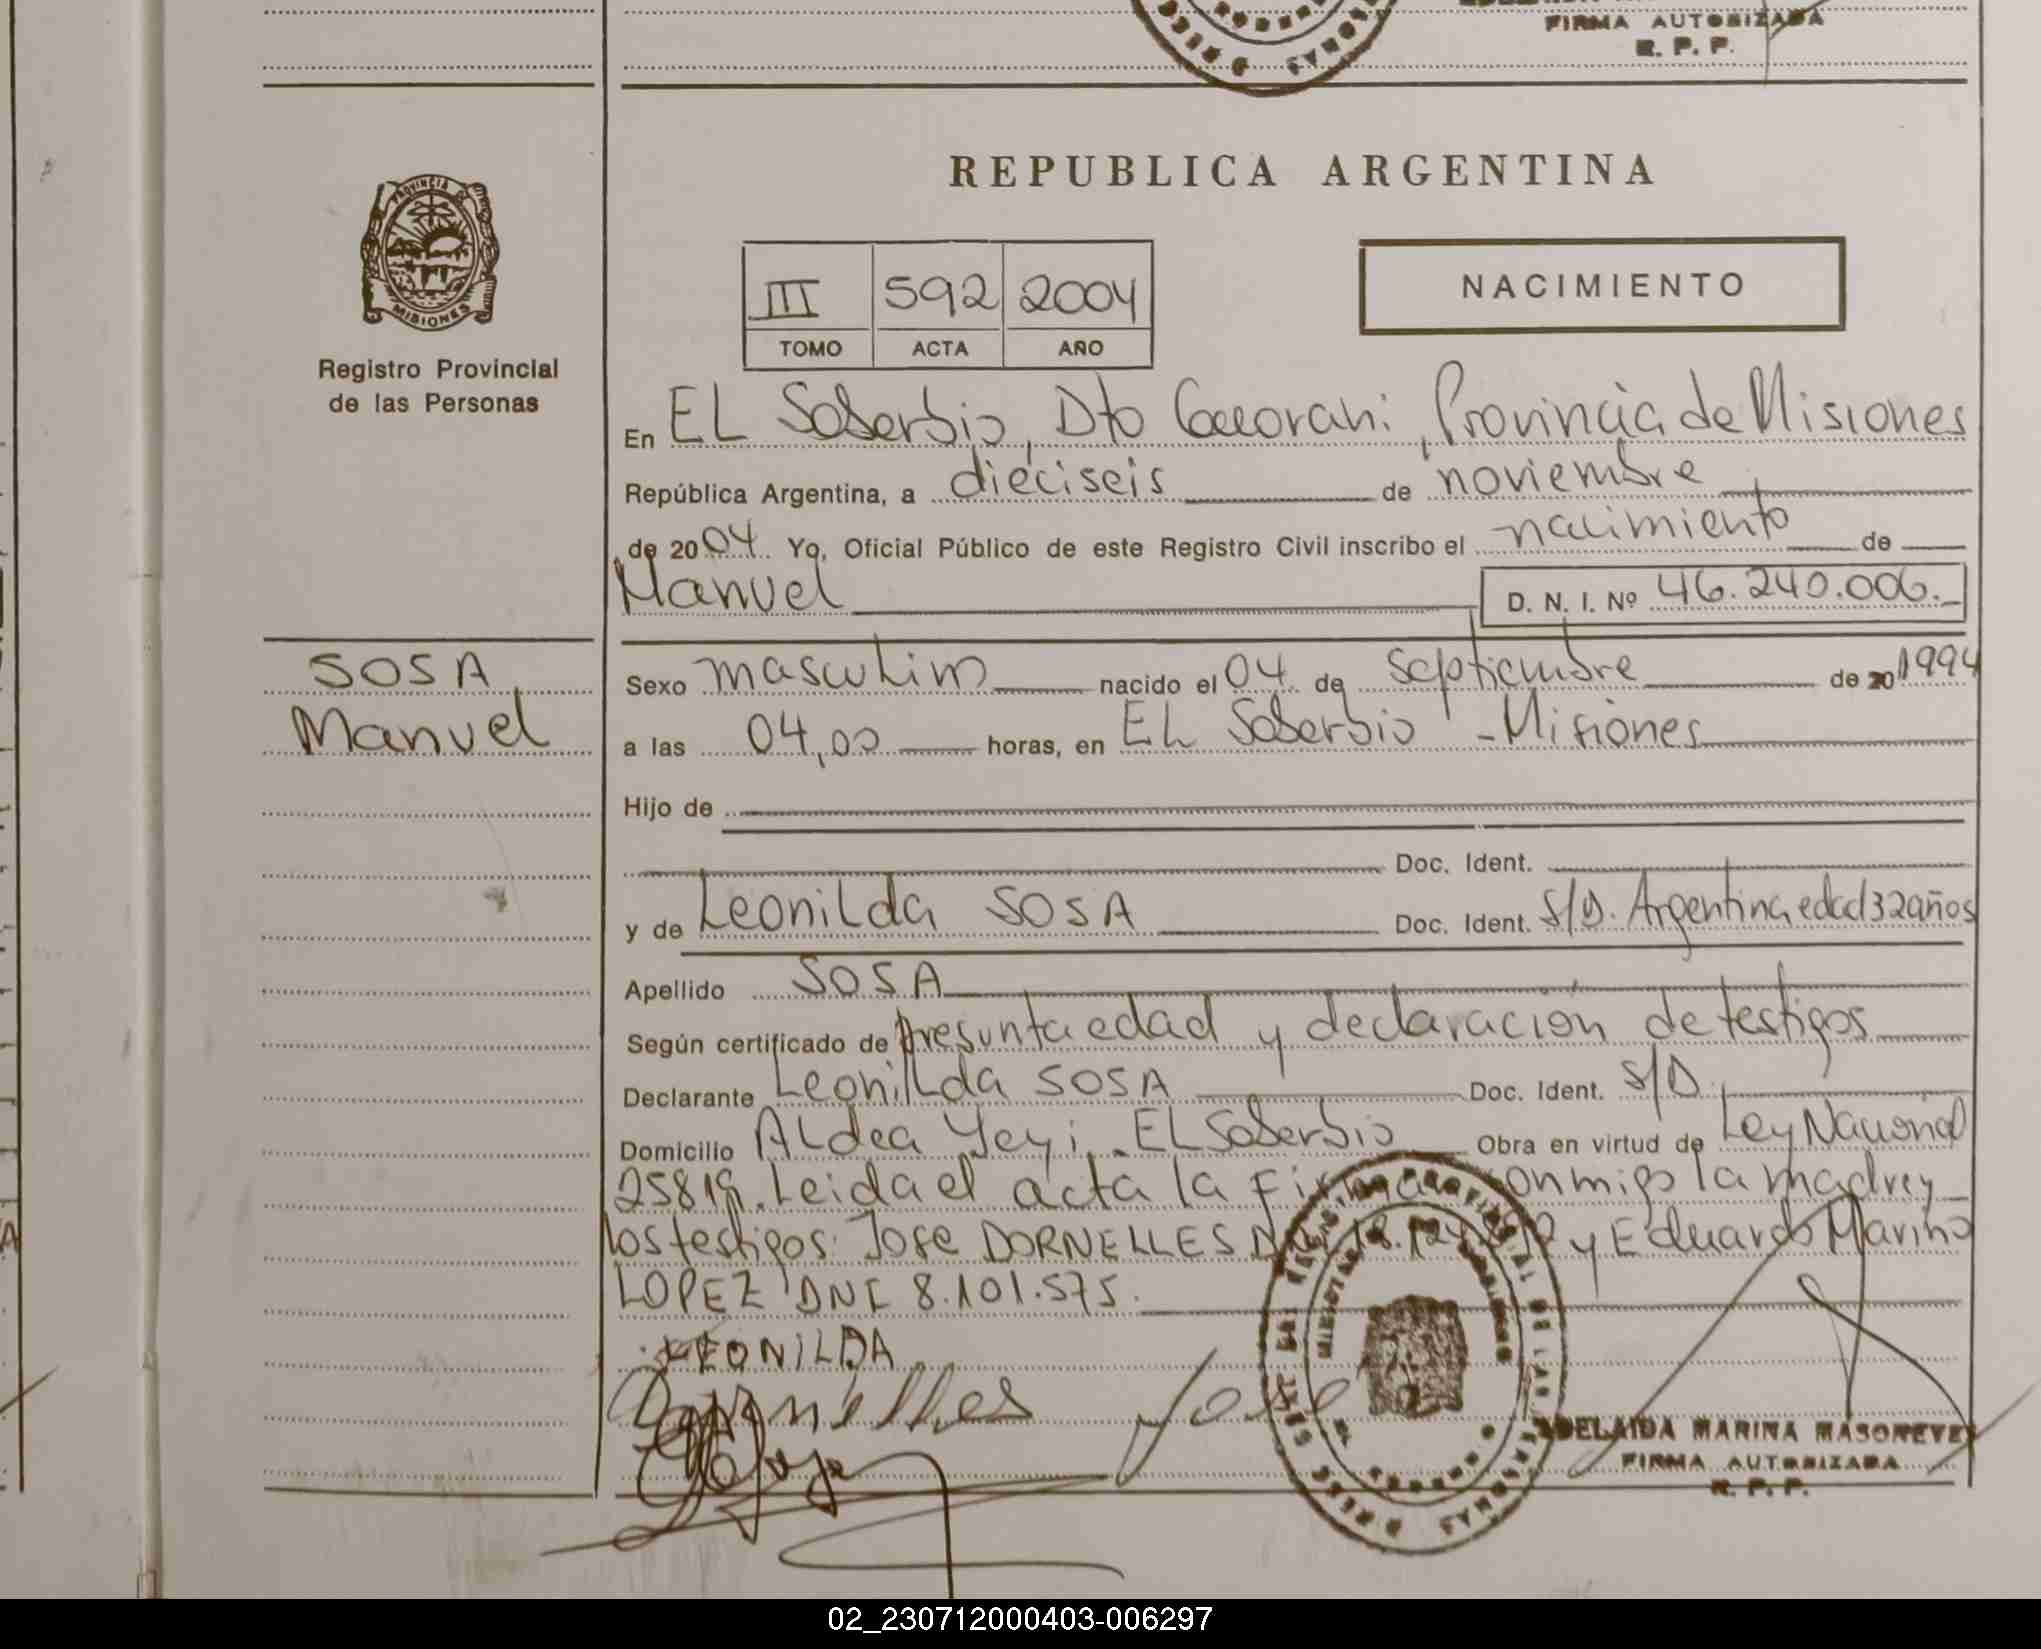 FIRMA AUTORIZADA
R. P. P.
REPUBLICA ARGENTINA
PROVINCIA
MISIONES
Registro Provincial
de las Personas
III 592 2004
TOMO ACTA AÑO
NACIMIENTO
En EL Soberbio, Dto Guarani, Provincia de Misiones
República Argentina, a dieciseis de noviembre
de 2004. Yo, Oficial Público de este Registro Civil inscribo el nacimiento de
Manuel D. N. I. Nº 46.240.006.
SOSA
Manuel
Sexo masculino nacido el 04 de septiembre de 20 1994
a las 04,00 horas, en EL Soberbio - Misiones
Hijo de
Doc. Ident.
y de Leonilda SOSA Doc. Ident. S/D. Argentina edad 32 años
Apellido SOSA
Según certificado de Presunta edad y declaración de testigos
Declarante Leonilda SOSA Doc. Ident. S/D.
Domicilio ALdea Yeyi - EL Soberbio Obra en virtud de Ley Nacional
25819. Leida el acta la Firma conmigo la madre y
los testigos: Jose DORNELLES y Eduardo Marino
LOPEZ DNI 8.101.575.
LEONILDA
Dornelles Jose
ADELAIDA MARINA MASONEVE
FIRMA AUTORIZADA
R. P. P.
02_230712000403-006297